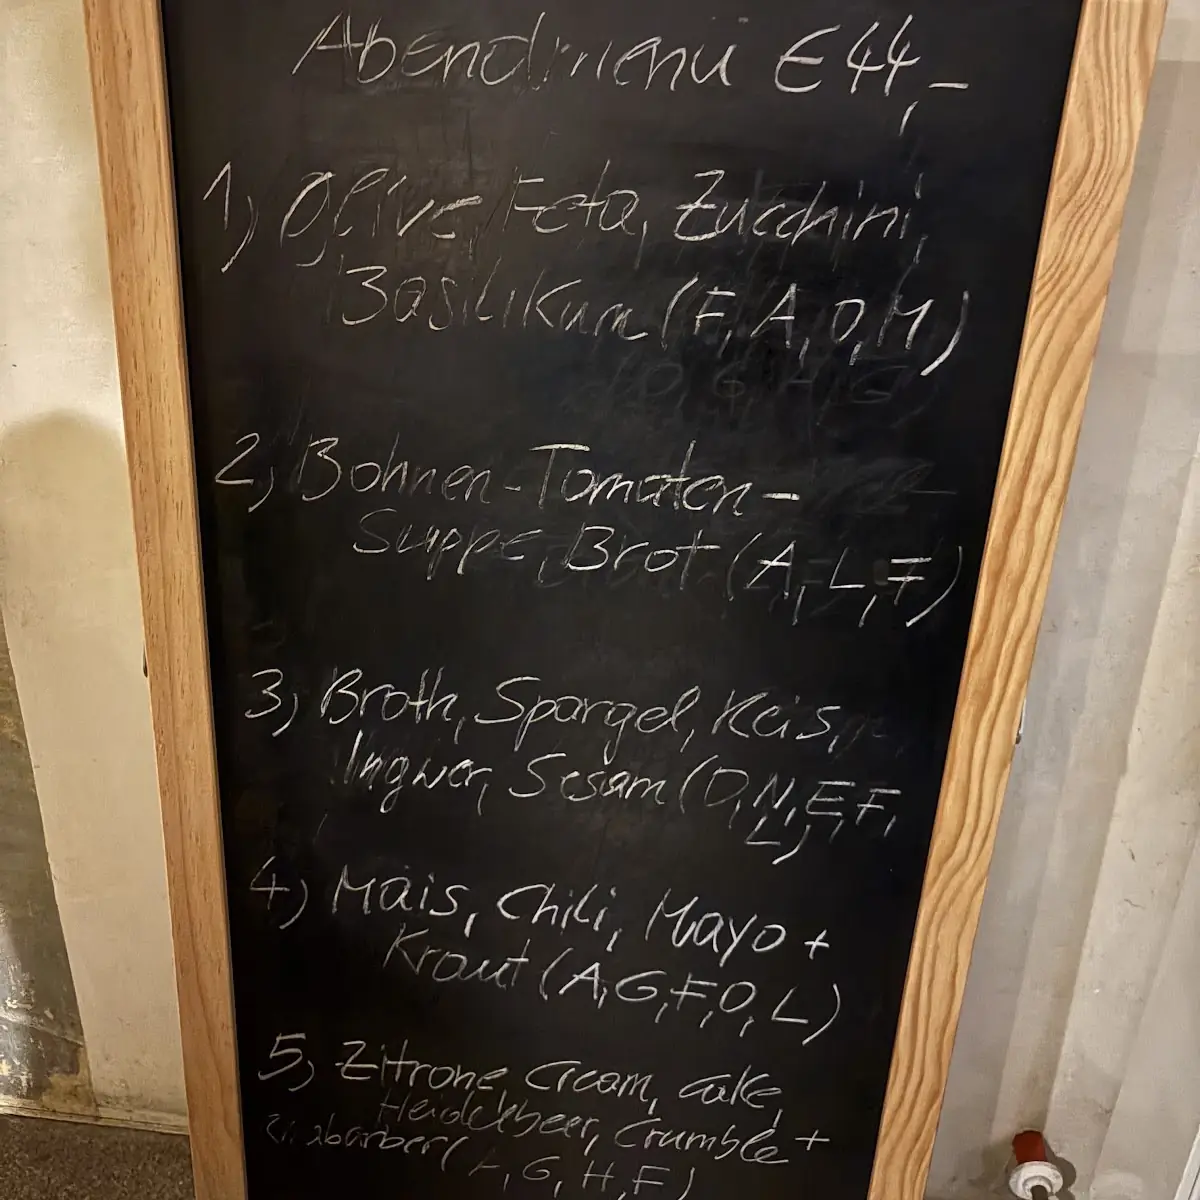 Abendmenü € 44,-
1) Olive, Feta, Zucchini,
Basilikum (F, A, O, M)
2) Bohnen-Tomaten-
Suppe, Brot (A, L, F)
3) Broth, Spargel, Reis,
Ingwer, Sesam (D, N, E, F,
L)
4) Mais, Chili, Mayo +
Kraut (A, G, F, O, L)
5) Zitrone, Cream, cake,
Heidelbeer, Crumble +
(A, G, H, F)